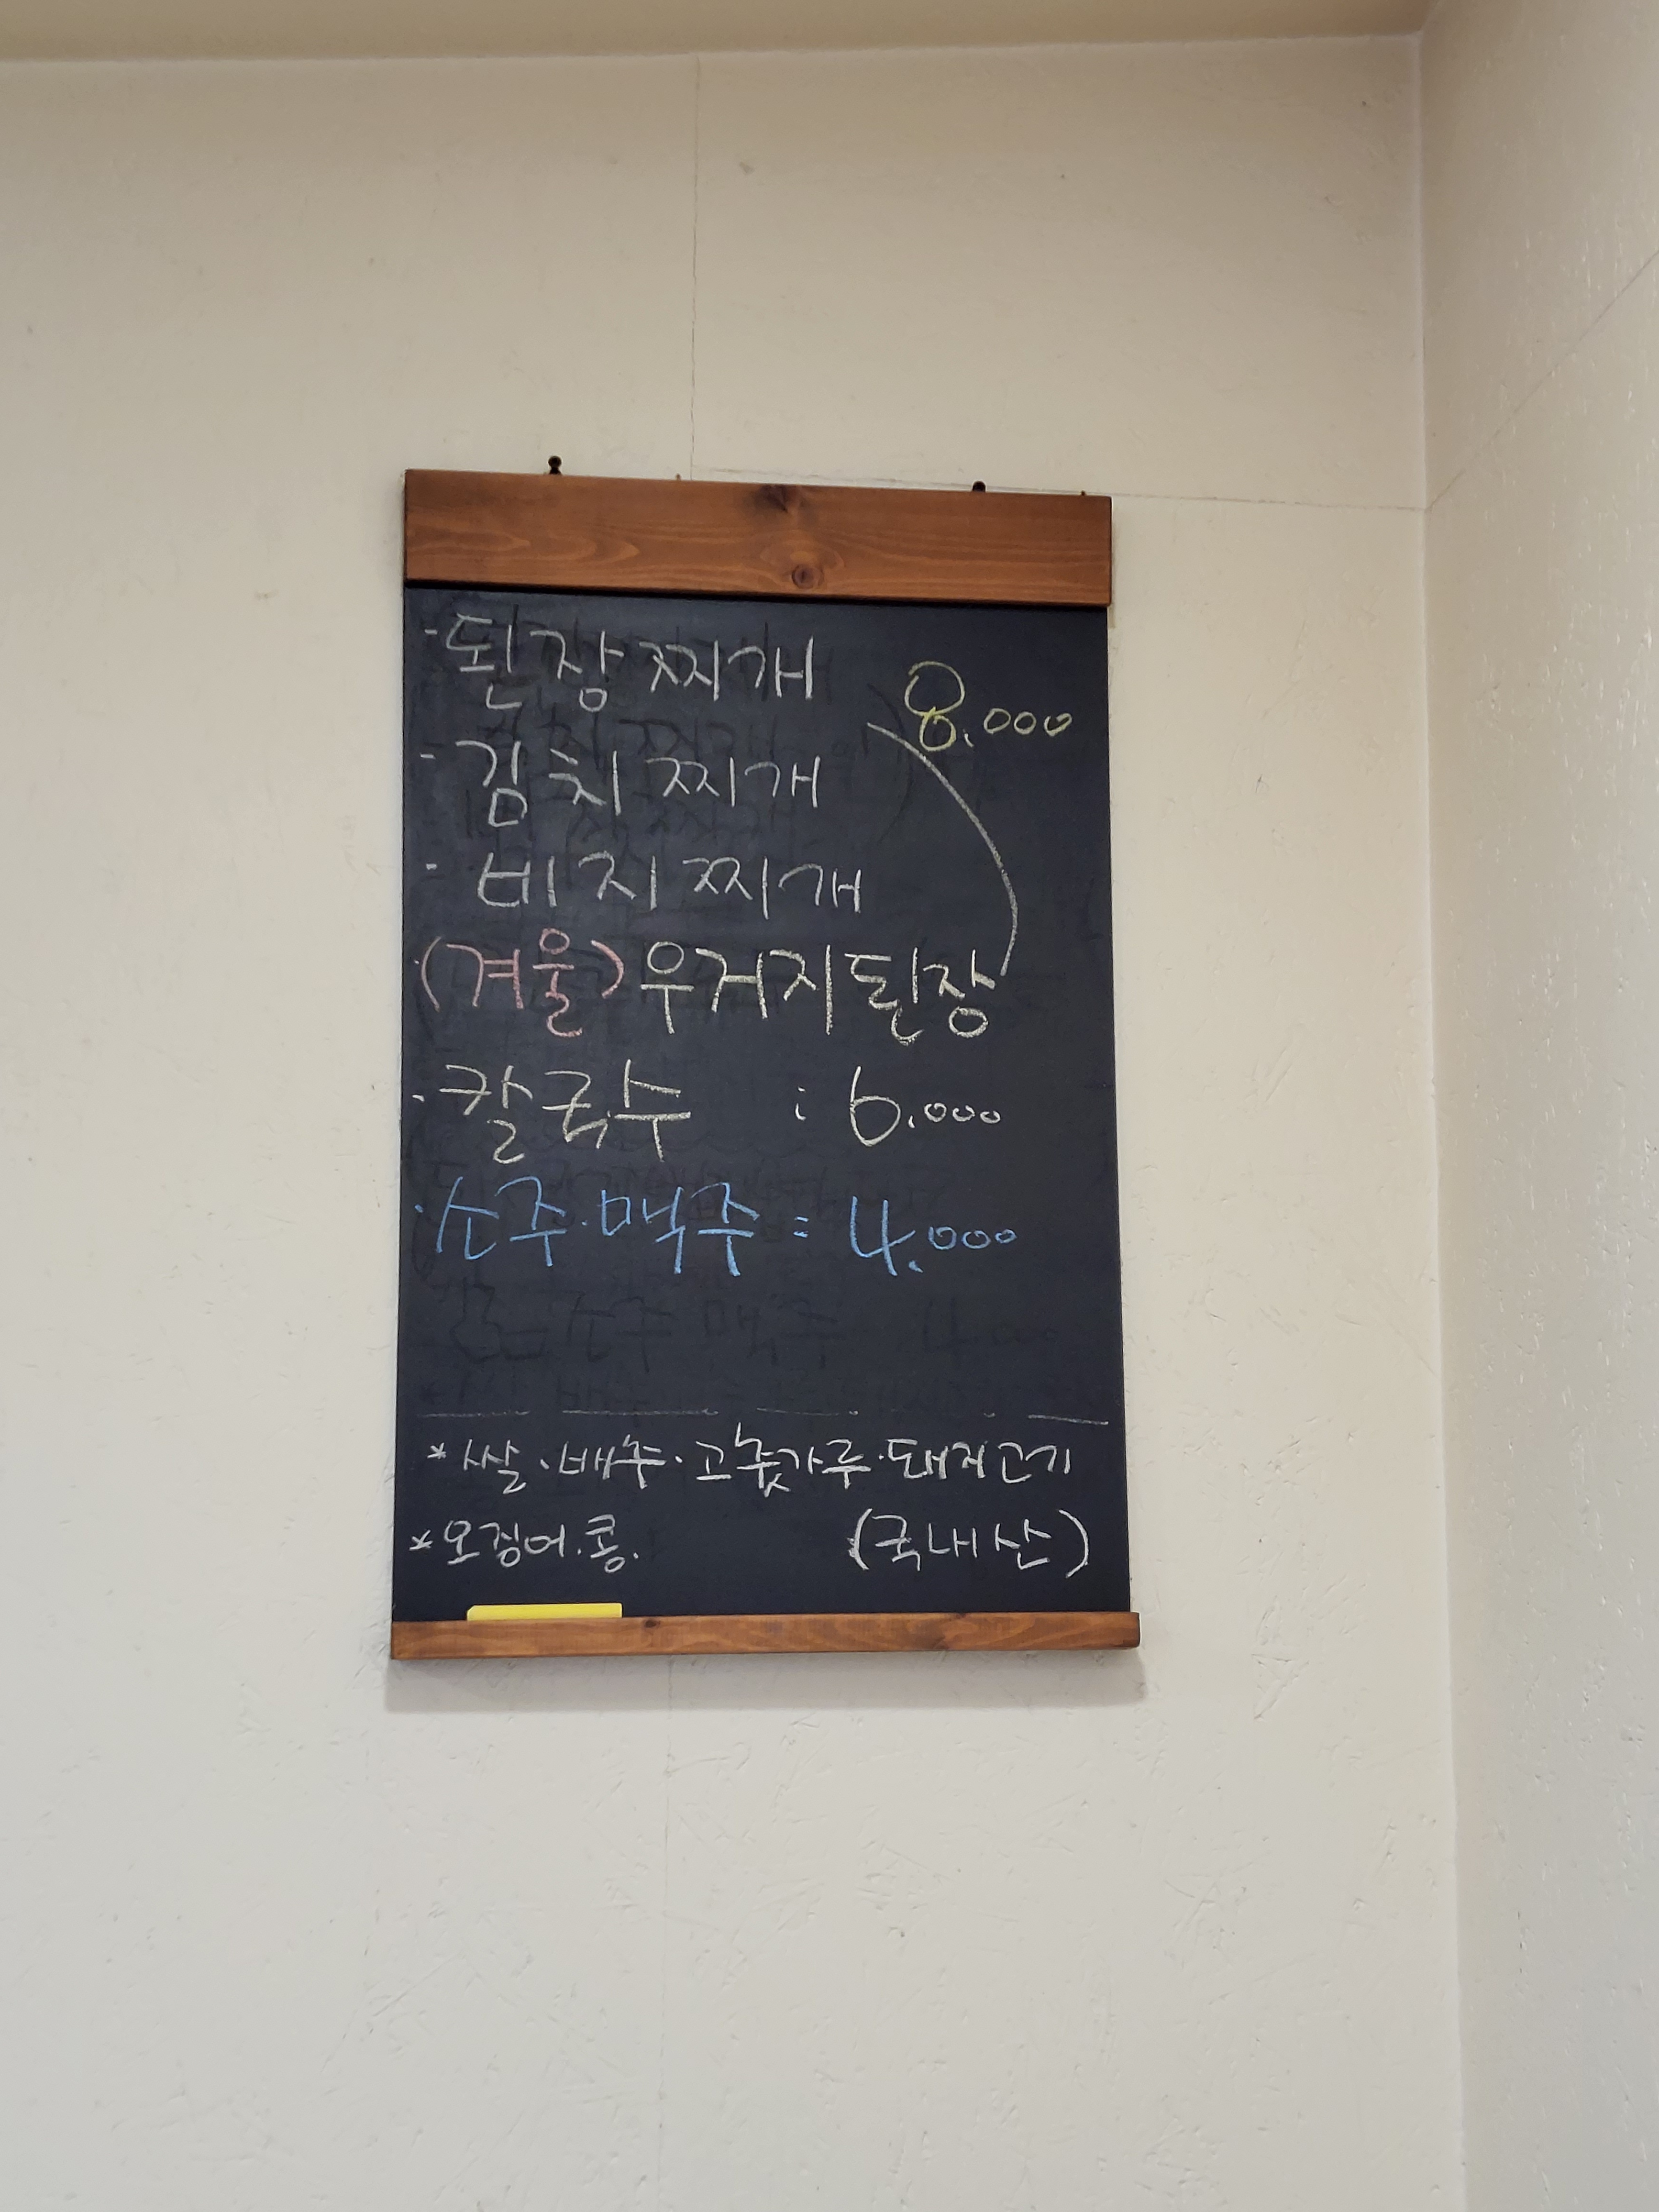 - 된장찌개
8.000
- 김치찌개
- 비지찌개
(겨울) 우거지된장
· 칼국수 : 6.000
· 소주·맥주 = 4.000
* 쌀·배추·고춧가루·돼지고기
* 오징어·콩. (국내산)